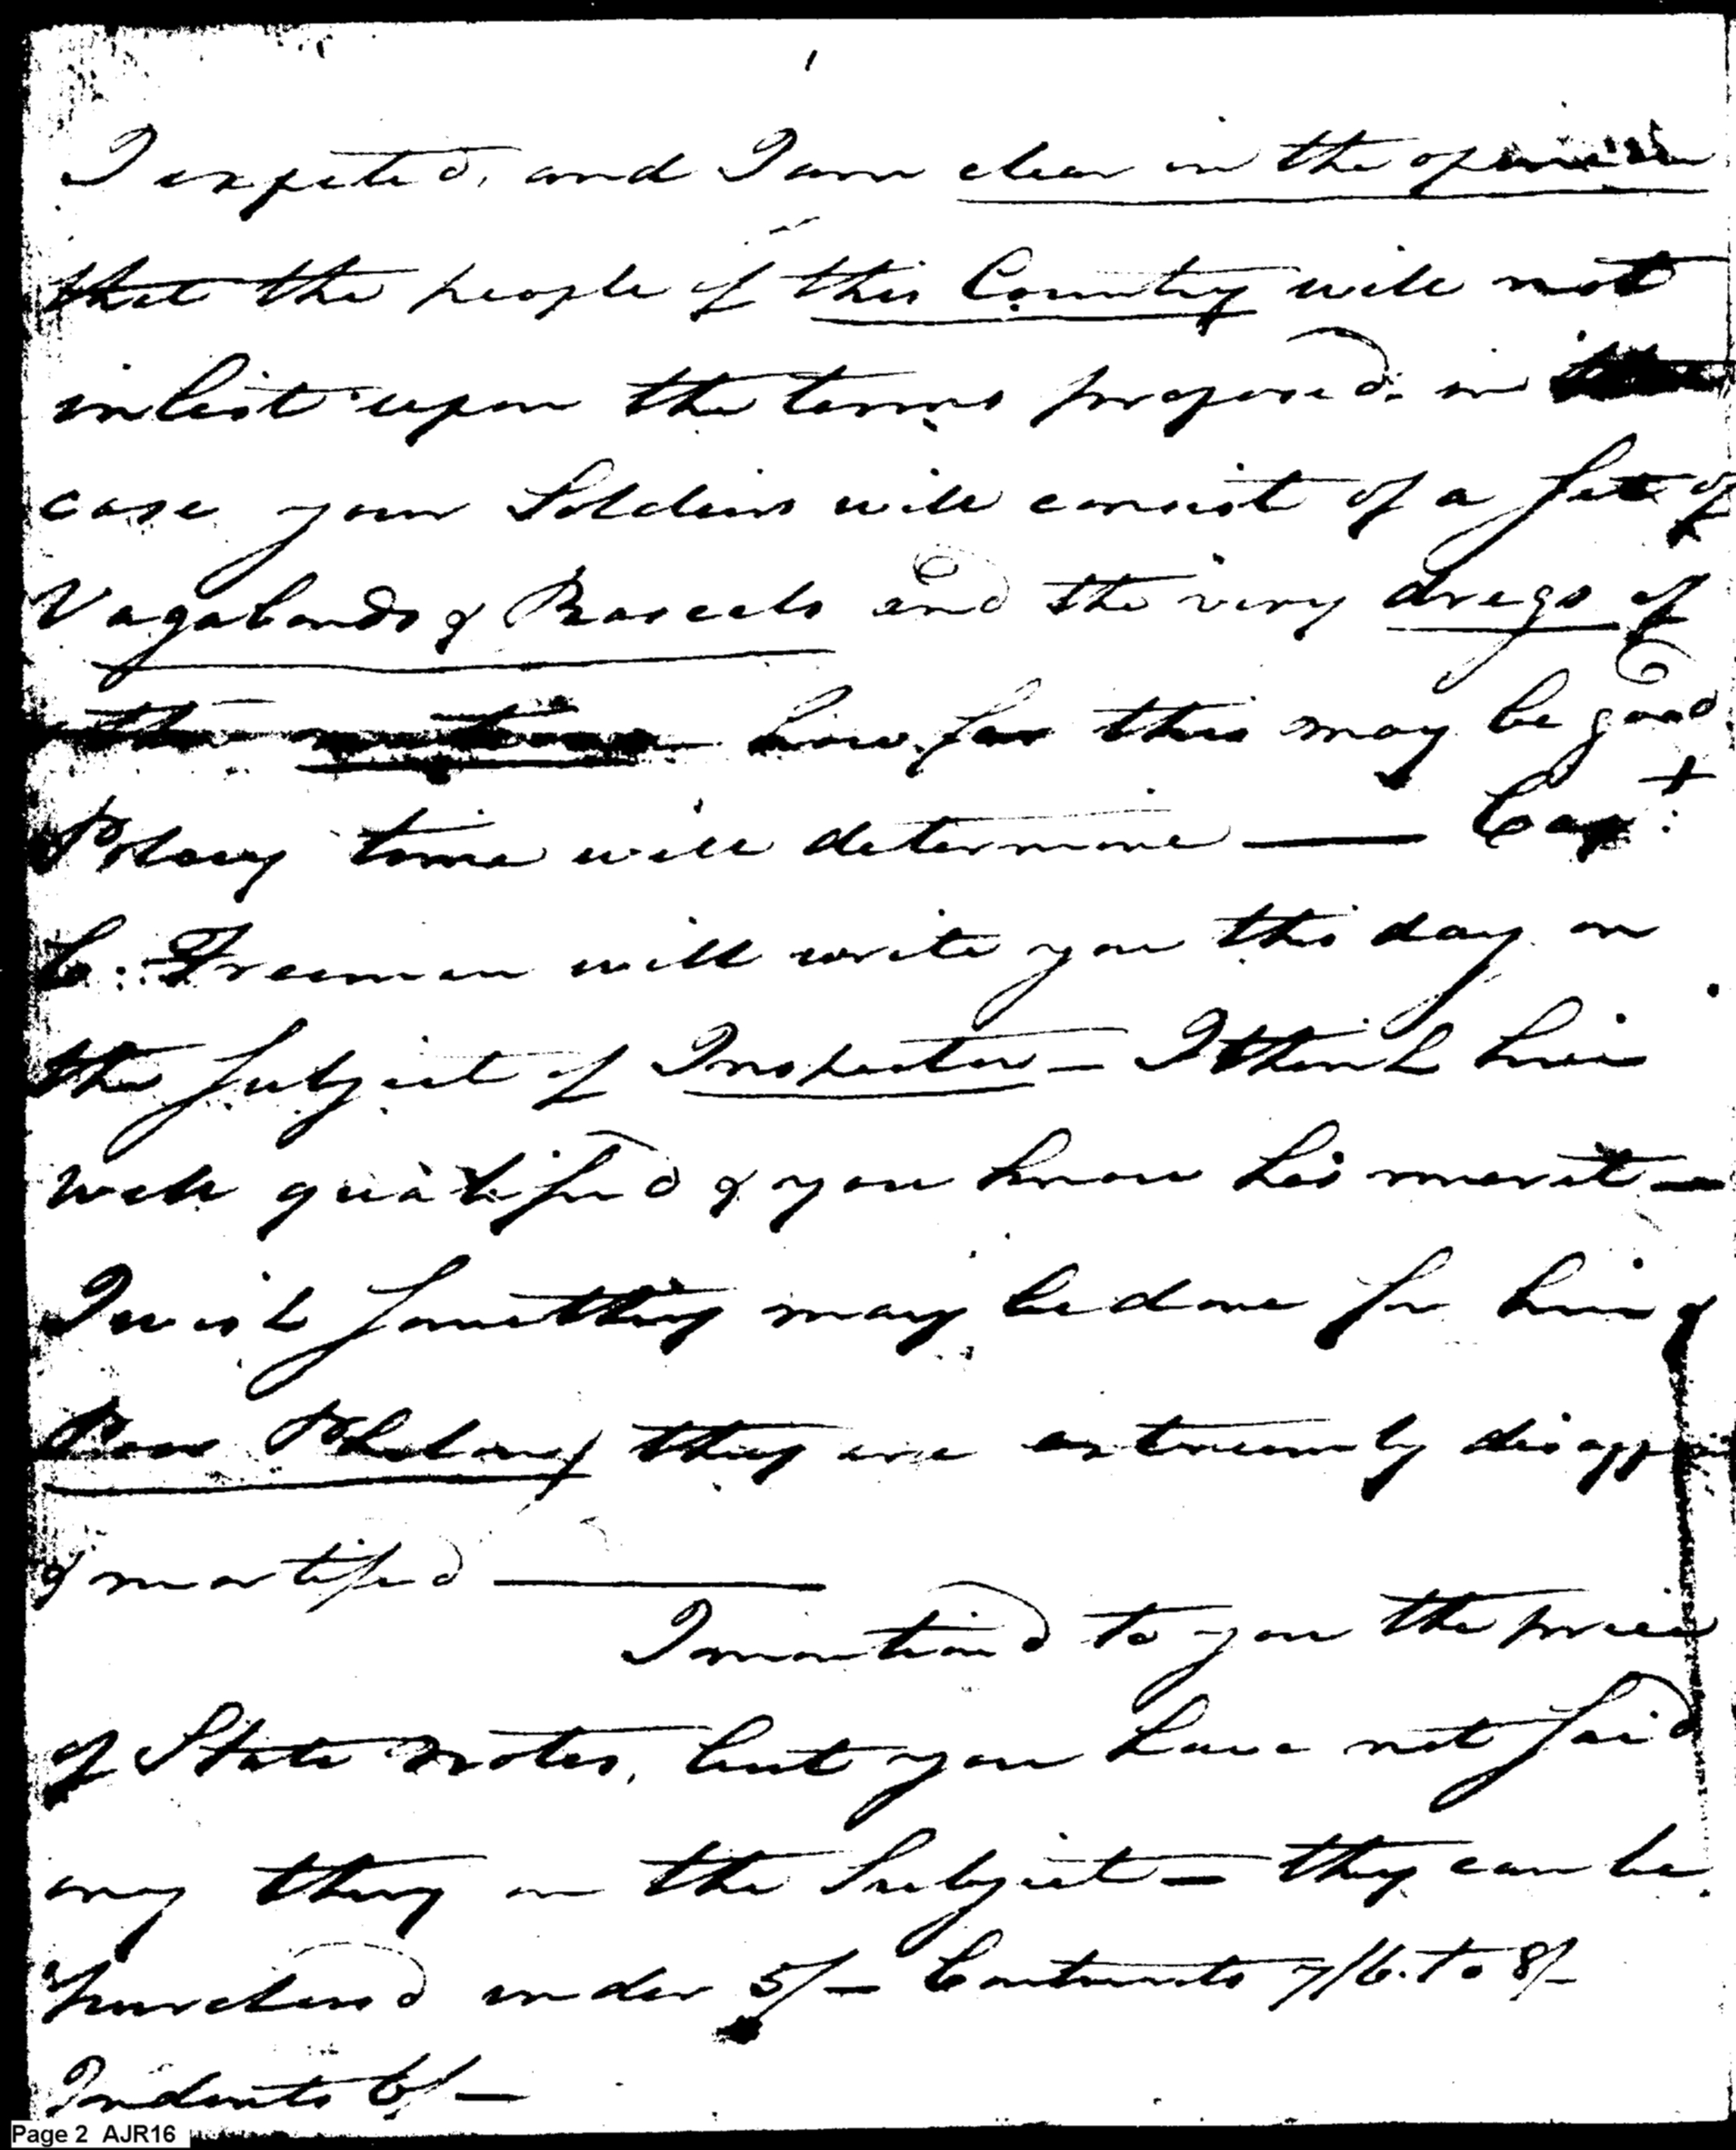 I expeted, and I am clear in the opinion
that the people of this Country will not
inlist upon the terms proposed. in
case your Soldiers will consist of a set of
Vagabonds & Rascels and the very dregs of
the how far this may be good
Polacy time will determine — Capt:
C: Freeman will write you this day on
the subject of Inspector — I think him
well qualified & you know his merit —
I wish something may be done for him &
Poor Phelon, they are extreemly disapp
& mortified —
I mentiond to you the price
of State notes, but you have not said
any thing on the Subject — they can be
purchesd under 5/— Continents 7/6. to 8/—
Indents 6/—
Page 2 AJR16